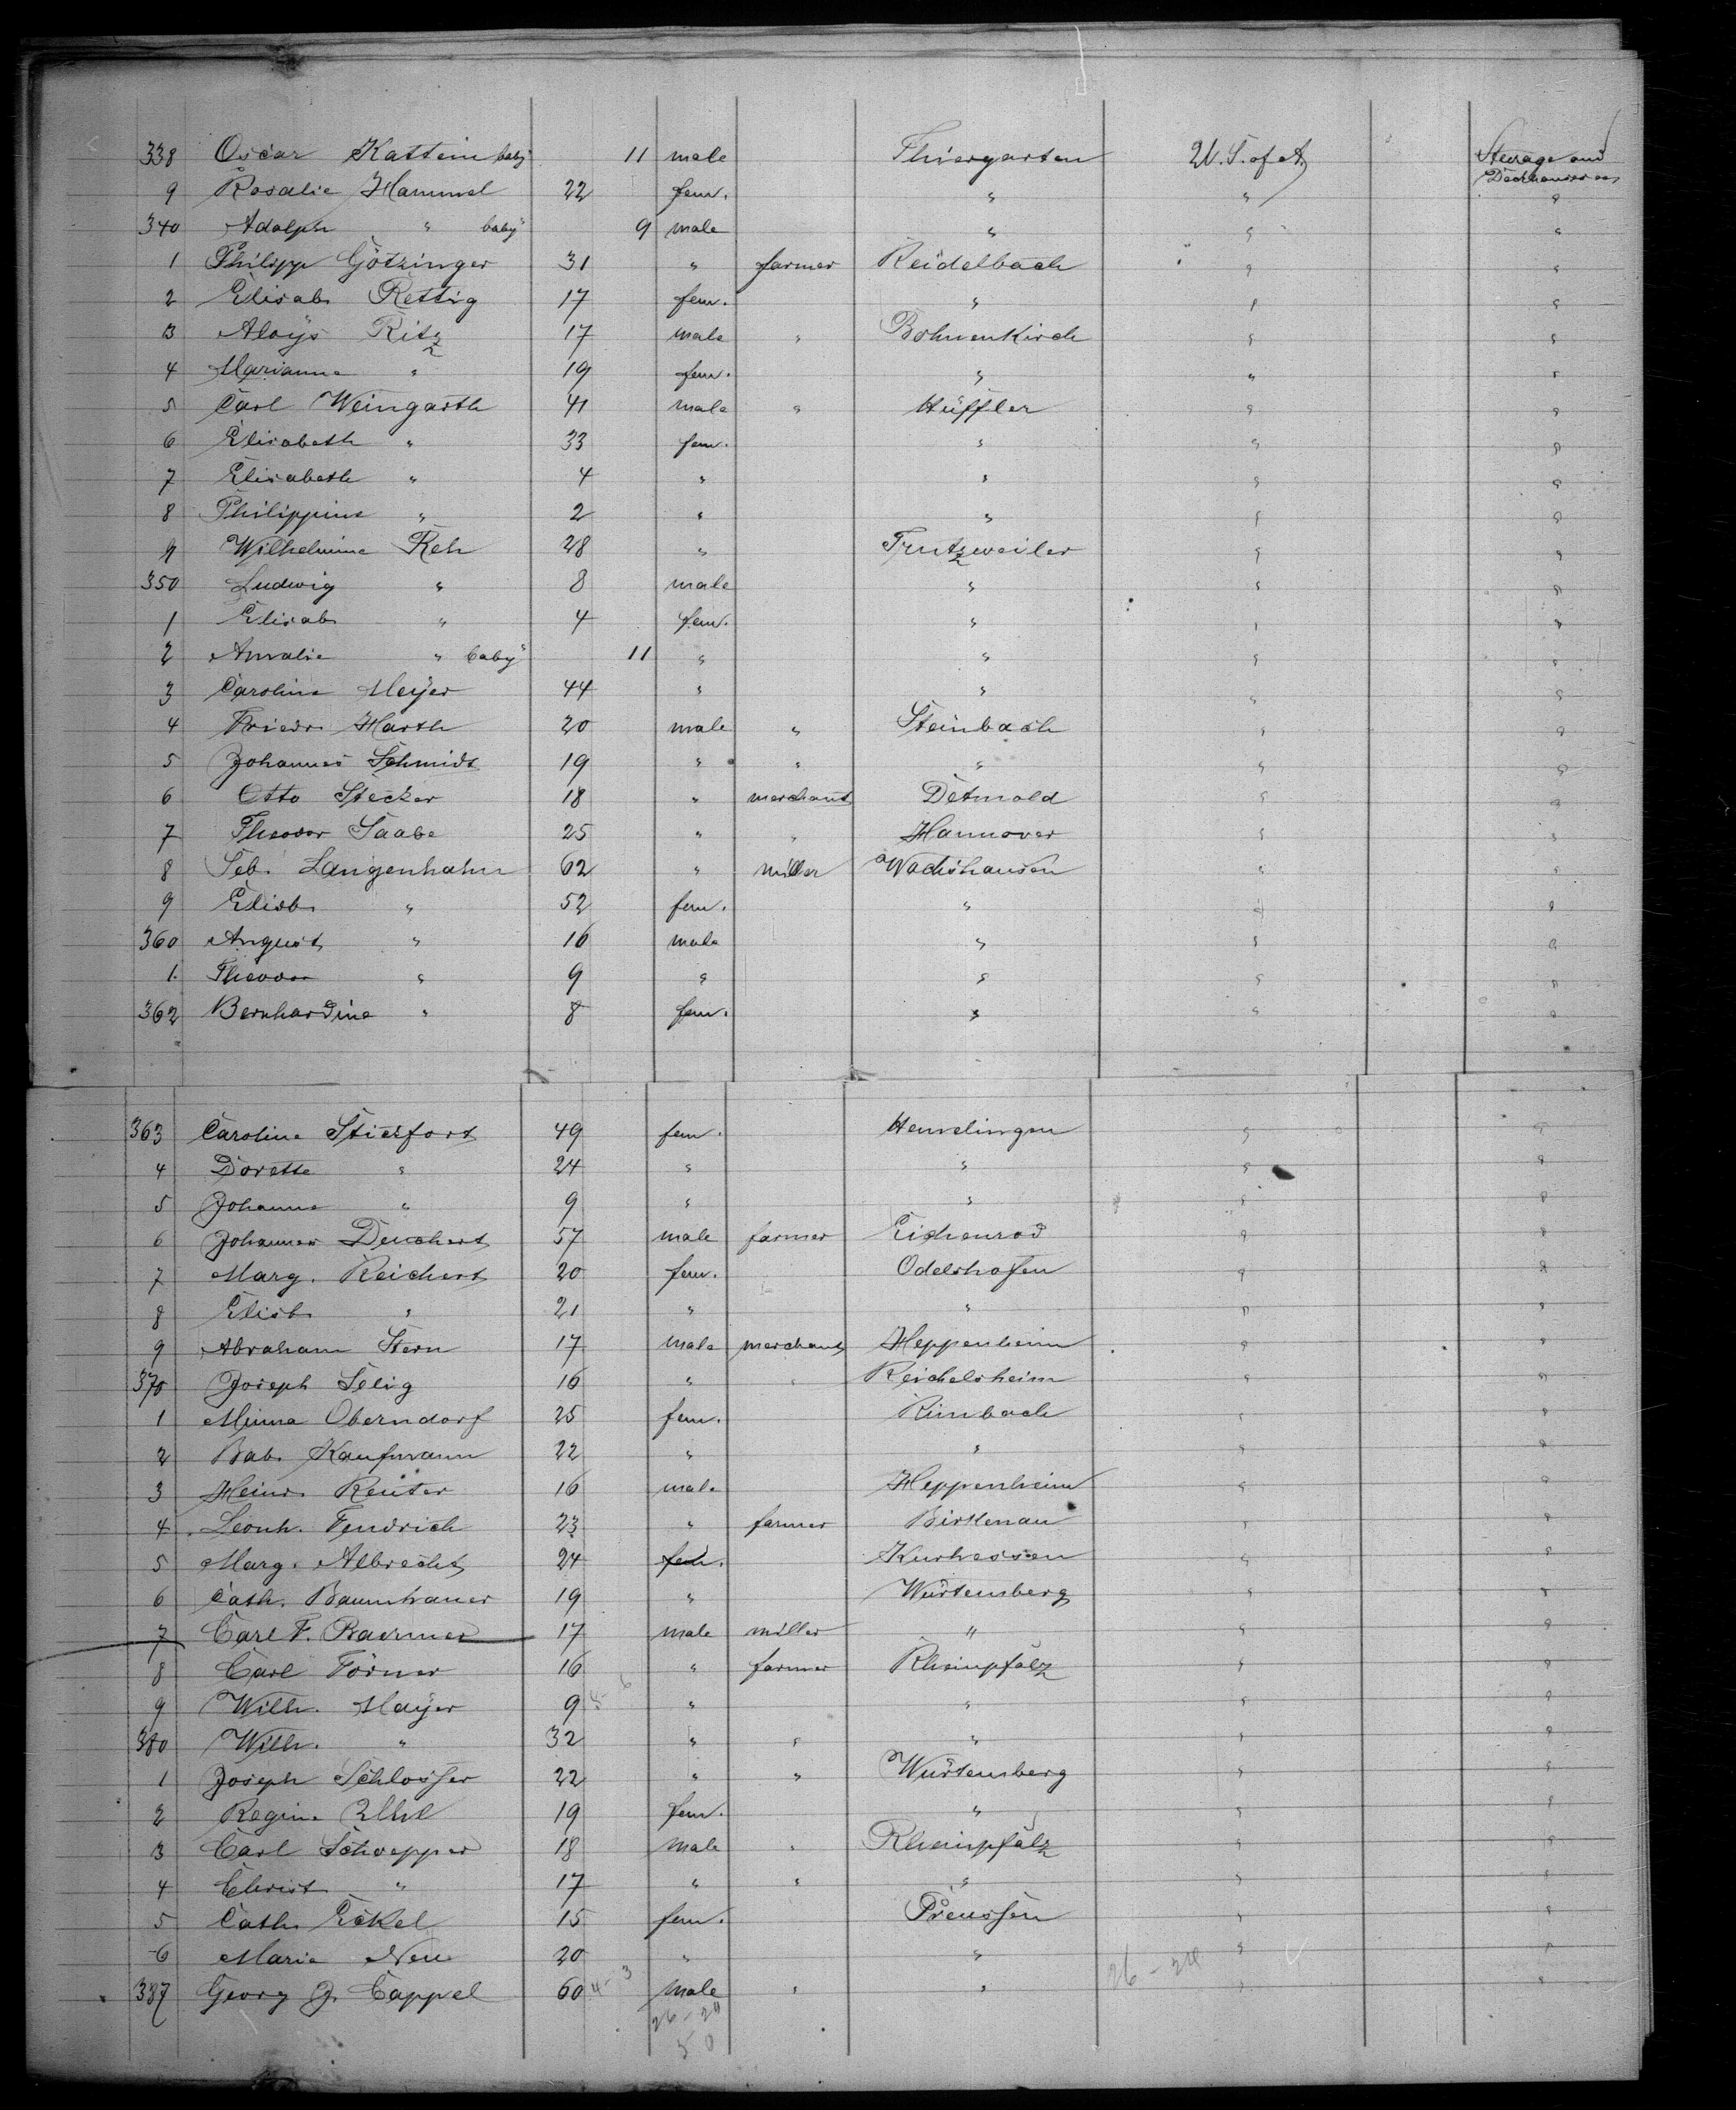 338 Oscar Kattein baby 11 male Thiergarten U.S. of A. Steerage and
9 Rosalie Hammel 22 fem. " " "
340 Adolph " baby 9 male " " "
1 Philipp Götzinger 31 " farmer Reidelbach " "
2 Elisab. Rettig 17 fem. " " "
3 Aloys Ritz 17 male " Bohmenkirch " "
4 Marianna " 19 fem. " " "
5 Carl Weingarth 41 male " Hüffler " "
6 Elisabeth " 33 fem. " " "
7 Elisabeth " 4 " " " "
8 Philippine " 2 " " " "
9 Wilhelmine Reh 28 " Frutzweiler " "
350 Ludwig " 8 male " " "
1 Elisab. " 4 fem. " " "
2 Amalie " baby 11 " " " "
3 Caroline Meyer 44 " " " "
4 Friedr. Harth 20 male " Steinbach " "
5 Johannes Schmidt 19 " " " " "
6 Otto Stecker 18 " merchant Detmold " "
7 Theodor Saabe 25 " " Hannover " "
8 Seb. Langenhahn 62 " miller Wachshausen " "
9 Elisb. " 52 fem. " " "
360 August " 16 male " " "
1 Theodor " 9 " " " "
362 Bernhardine " 8 fem. " " "
363 Caroline Stickfort 49 fem. Hemelingen " "
4 Dorette " 24 " " " "
5 Johanne " 9 " " " "
6 Johannes Deuchert 57 male farmer Eichenrod " "
7 Marg. Reichert 20 fem. Odelshofen " "
8 Elisb. " 21 " " " "
9 Abraham Stern 17 male merchant Heppenheim " "
370 Joseph Selig 16 " " Reichelsheim " "
1 Minna Oberndorf 25 fem. Rimbach " "
2 Bab. Kaufmann 22 " " " "
3 Heinr. Reuter 16 male Heppenheim " "
4 Leonh. Fendrich 23 " farmer Birkenau " "
5 Marg. Albrecht 24 fem. Kurhessen " "
6 Cath. Baumhauer 19 " Würtemberg " "
7 Carl F. Baermer 17 male miller " " "
8 Carl Förner 16 " farmer Rheinpfalz " "
9 Wilh. Mayer 9 " " " "
380 Wilh. " 32 " " " " "
1 Joseph Schlosser 22 " " Würtemberg " "
2 Regine Uhl 19 fem. " " "
3 Carl Schoepper 18 male " Rheinpfalz " "
4 Christ. " 17 " " " " "
5 Cath. Eckel 15 fem. Preussen " "
6 Maria Neu 20 " " " "
387 Georg J. Cappel 60 male " " " "
26-24
50